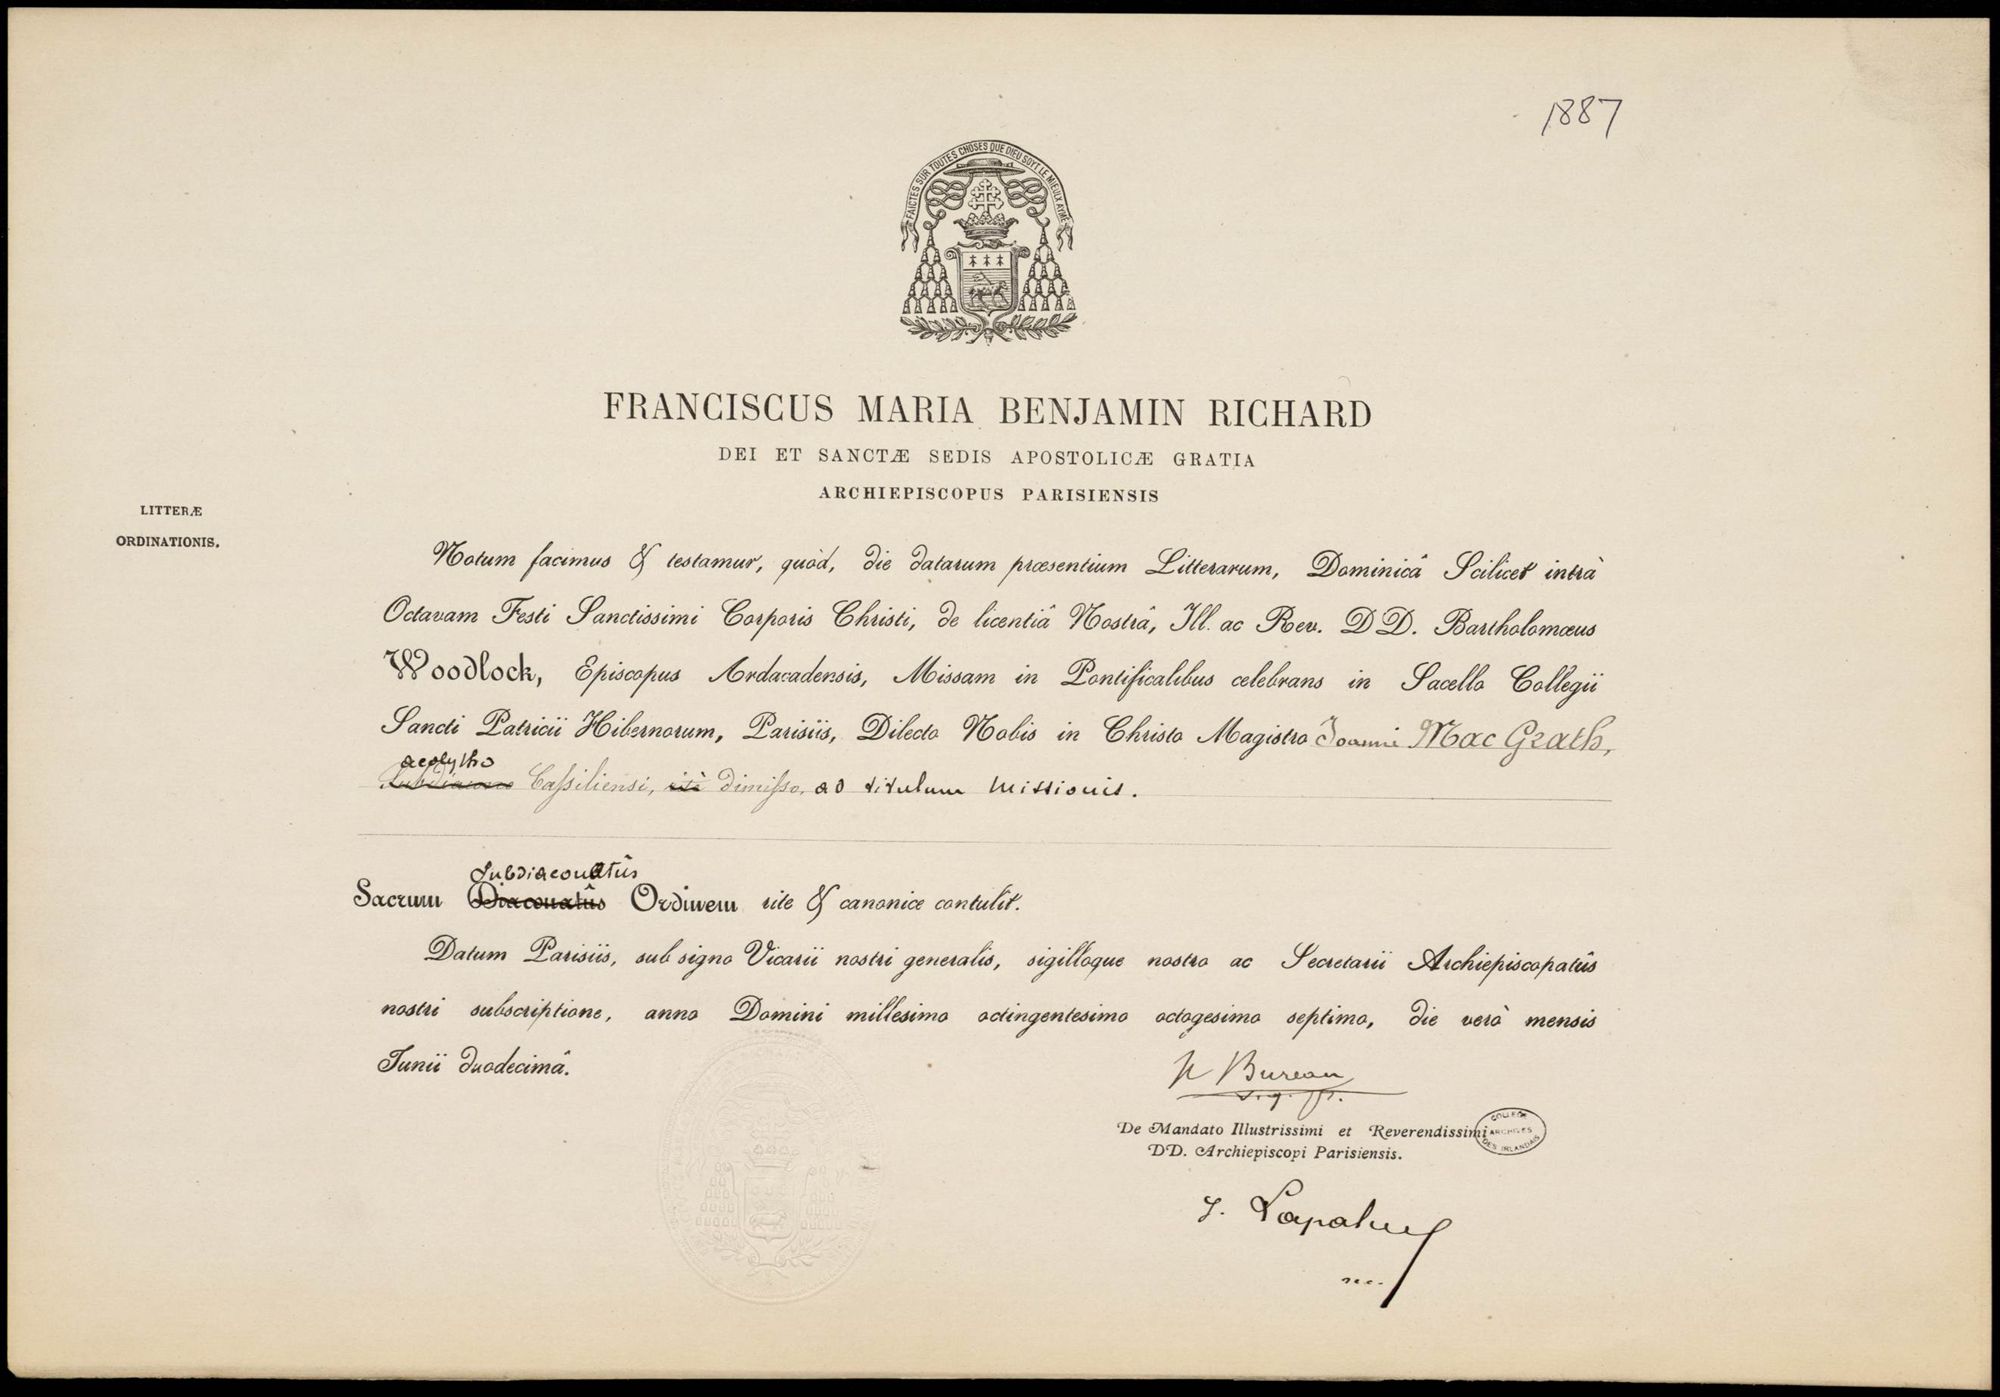 1887
FAICTES SUR TOUTES CHOSES QUE DIEU SOYT LE MIEULX AYMÉ
FRANCISCUS MARIA BENJAMIN RICHARD
DEI ET SANCTÆ SEDIS APOSTOLICÆ GRATIA
ARCHIEPISCOPUS PARISIENSIS
LITTERÆ
ORDINATIONIS.
Notum facimus & testamur, quòd, die datarum præsentium Litterarum, Dominicâ Scilicet intrà
Octavam Festi Sanctissimi Corporis Christi, de licentiâ Nostrâ, Ill. ac Rev. DD. Bartholomæus
Woodlock, Episcopus Ardacadensis, Missam in Pontificalibus celebrans in Sacello Collegii
Sancti Patricii Hibernorum, Parisiis, Dilecto Nobis in Christo Magistro Joanni Mac Grath,
acolytho
Subdiacono Cassiliensi, ritè dimisso, ad titulum missionis.
Subdiaconatûs
Sacrum Diaconatûs Ordinem rite & canonice contulit.
Datum Parisiis, sub signo Vicarii nostri generalis, sigilloque nostro ac Secretarii Archiepiscopatûs
nostri subscriptione, anno Domini millesimo octingentesimo octogesimo septimo, die verò mensis
Junii duodecimâ.
Bureau
v. g.
De Mandato Illustrissimi et Reverendissimi
DD. Archiepiscopi Parisiensis.
COLLEGE
ARCHIVES
DES IRLANDAIS